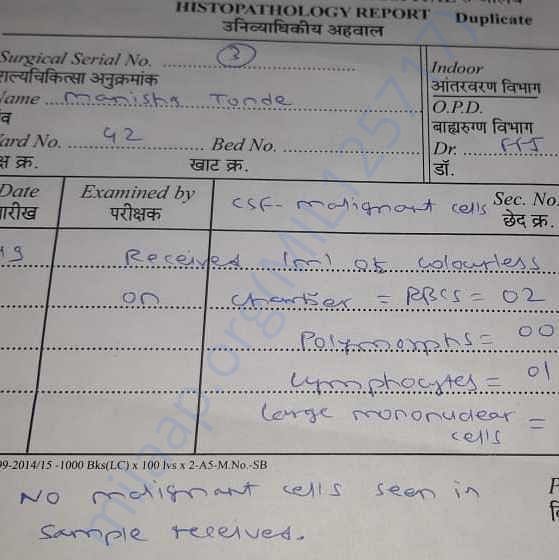 HISTOPATHOLOGY REPORT Duplicate
उनिव्याधिकीय अहवाल
Surgical Serial No. 3
शल्यचिकित्सा अनुक्रमांक
Indoor
आंतरवरण विभाग
Name Manisha Tonde
O.P.D.
बाह्यरुग्ण विभाग
Ward No. 42 Bed No.
क्ष क्र. खाट क्र.
Dr.
डॉ.
Date Examined by CSF- malignant cells Sec. No.
तारीख परीक्षक छेद क्र.
Received 1ml of colourless
on chamber = RBCS = 02
Polymorphs = 00
Lymphocytes = 01
Large mononuclear =
cells
99-2014/15 -1000 Bks(LC) x 100 lvs x 2-A5-M.No.-SB
No malignant cells seen in
sample received.
milaap.org(MIL125717)